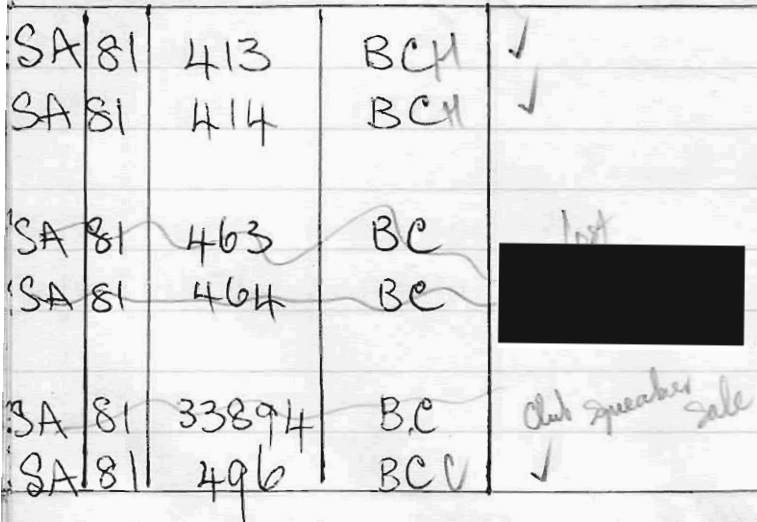 SA 81 413 BCH ✓
SA 81 414 BCH ✓
SA 81 463 BC lost
SA 81 464 BC
SA 81 33894 B.C Club speaker sale
SA 81 496 BCC ✓